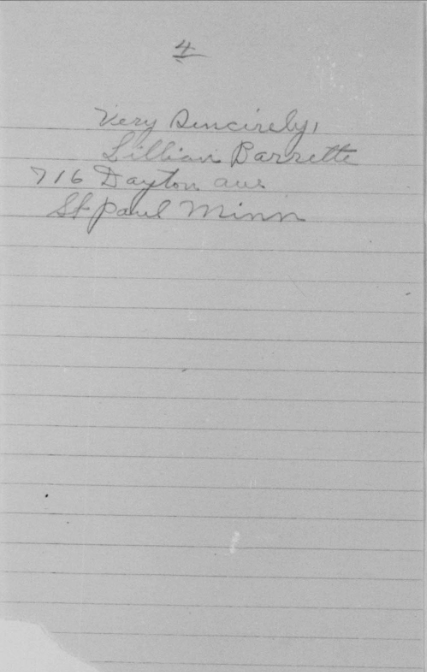 4
Very Sincirely,
Lillian Barrette
716 Dayton ave
St Paul Minn